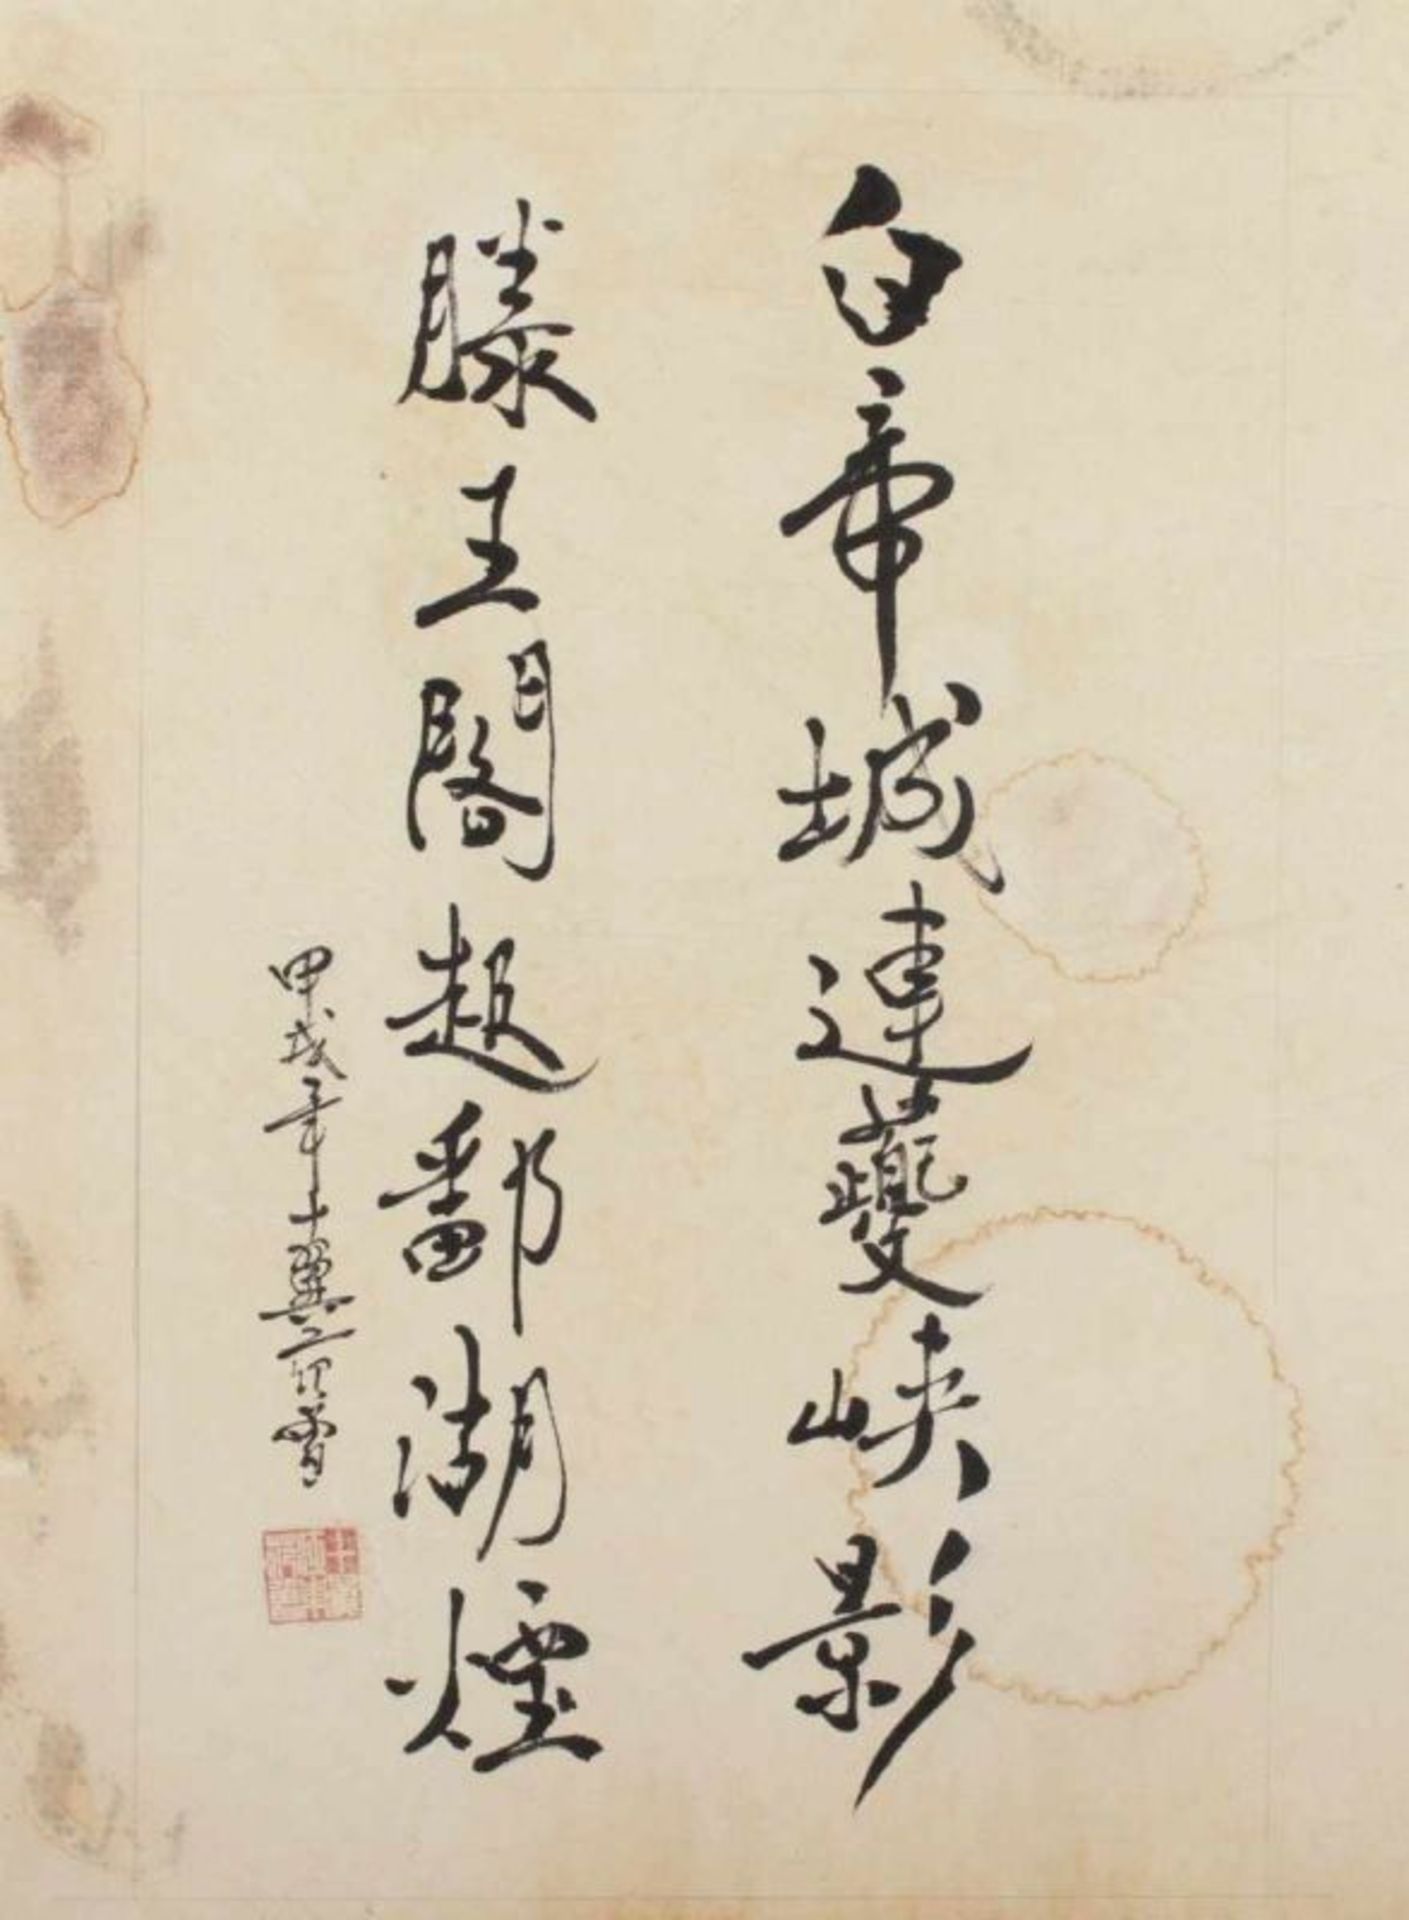 白帝城連夔峽影
滕王閣趁鄱湖煙
甲戌年十翼